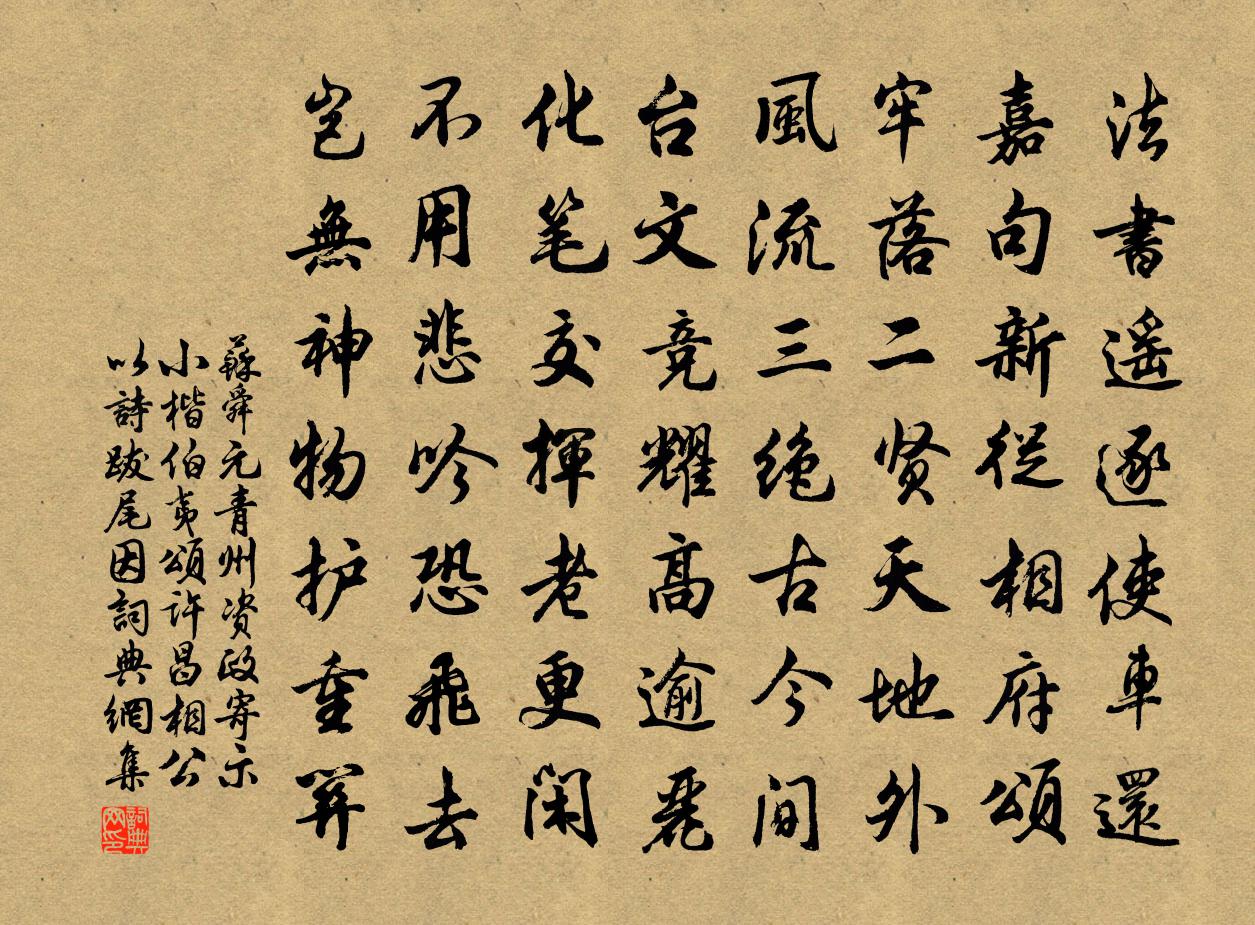 法書遥逐使車還
嘉句新從相府頌
牢落二贤天地外
風流三绝古今间
台文竞耀高逾麗
化笔交揮老更闲
不用悲吟恐飛去
岂無神物护重関
蘇舜元青州资政寄示
小楷伯夷頌许昌相公
以詩跋尾因詞典網集
詞典网印